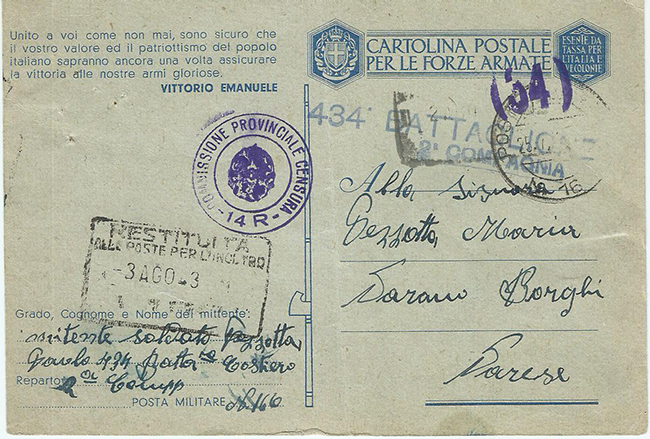 Unito a voi come non mai, sono sicuro che
il vostro valore ed il patriottismo del popolo
italiano sapranno ancora una volta assicurare
la vittoria alle nostre armi gloriose.
VITTORIO EMANUELE
CARTOLINA POSTALE
PER LE FORZE ARMATE
ESENTE DA
TASSA PER
L'ITALIA E
COLONIE
(54)
434° BATTAGLIONE
2ª COMPAGNIA
POSTA
N. 16
COMMISSIONE PROVINCIALE CENSURA
- 14 R -
RESTITUITA
ALLE POSTE PER L'INOLTRO
-3 AGO
Alla Signora
Pezzotta Maria
Sarano Borghi
Varese
Grado, Cognome e Nome del mittente:
mittente soldato Pezzotta
434 Batta Costiero
Reparto 2a Comp
POSTA MILITARE N. 166